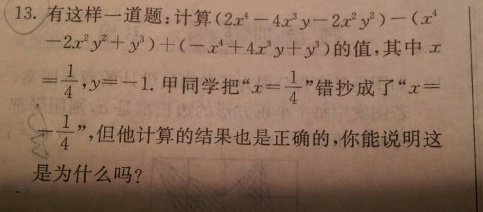 13. 有这样一道题:计算(2x⁴-4x³y-2x²y²)-(x⁴
-2x²y²+y³)+(-x⁴+4x³y+y³)的值,其中 x
=1/4,y=-1. 甲同学把“x=1/4”错抄成了“x=
-1/4”,但他计算的结果也是正确的,你能说明这
是为什么吗?